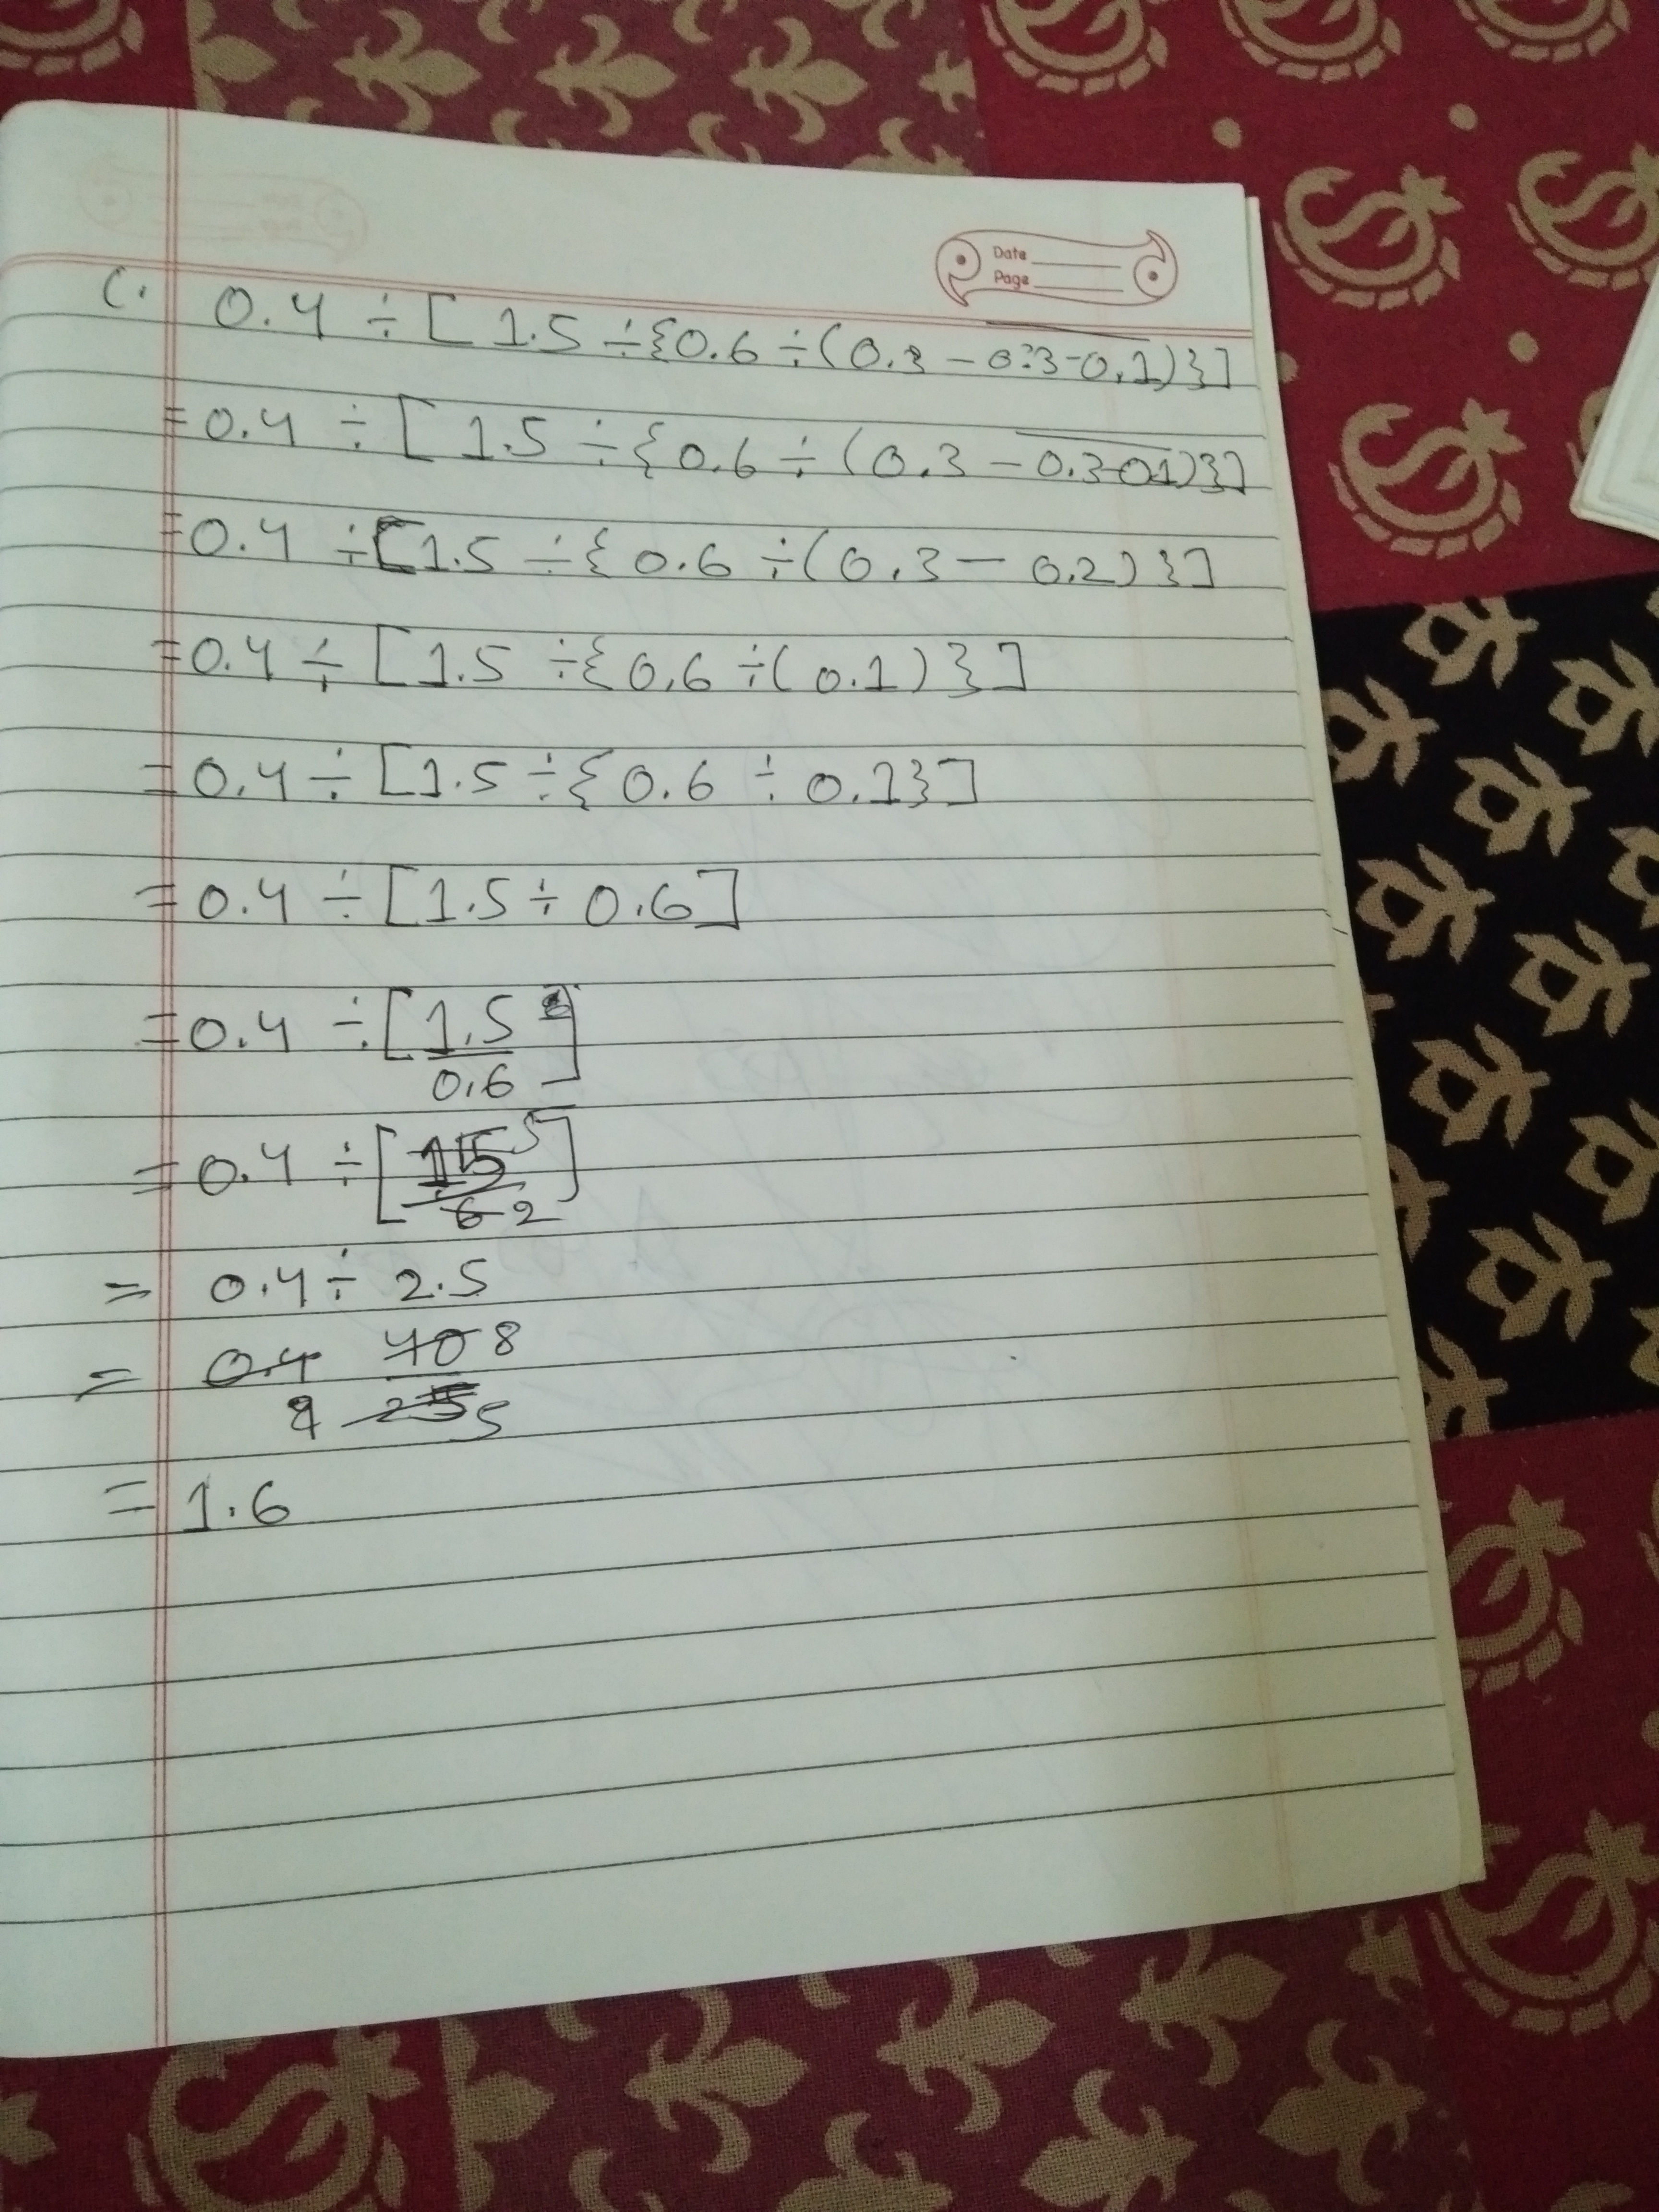 Date
Page
c. 0.4 ÷ [ 1.5 ÷ {0.6 ÷ (0.3 – 0.3-0.1)}]
= 0.4 ÷ [ 1.5 ÷ { 0.6 ÷ (0.3 – 0.3-0.1)}]
= 0.4 ÷ [1.5 ÷ { 0.6 ÷ (0.3 – 0.2) }]
= 0.4 ÷ [1.5 ÷ { 0.6 ÷ ( 0.1 ) } ]
= 0.4 ÷ [1.5 ÷ { 0.6 ÷ 0.1}]
= 0.4 ÷ [1.5 ÷ 0.6]
= 0.4 ÷ [1.5
0.6 ]
= 0.4 ÷ [15 5
6 2 ]
= 0.4 ÷ 2.5
= 0.4 40 8
25 5
= 1.6